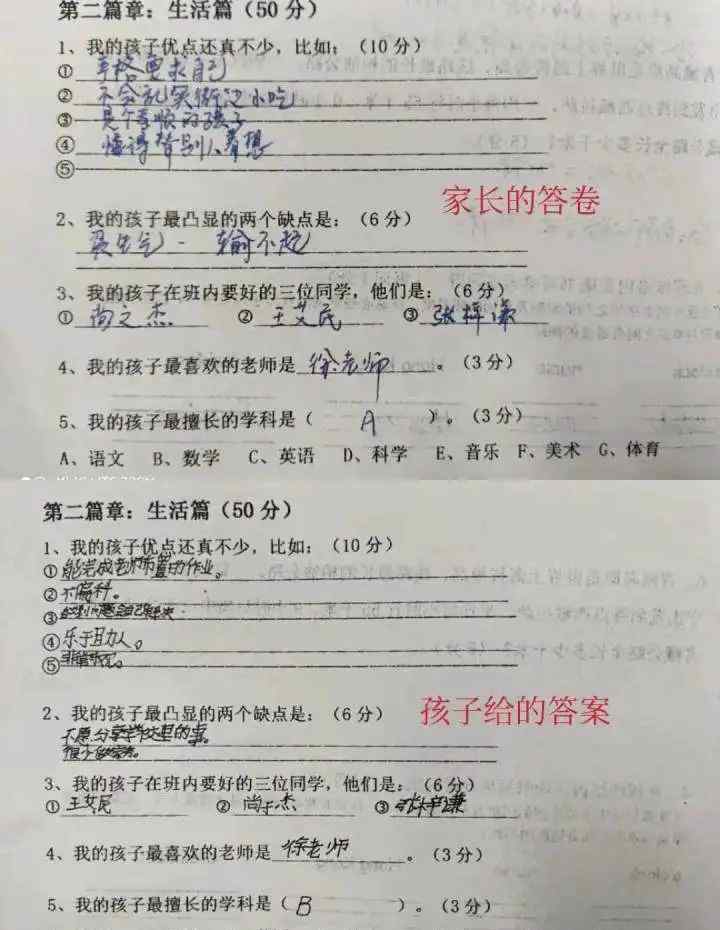 第二篇章：生活篇（50分）
1、我的孩子优点还真不少，比如：（10分）
① 严格要求自己
② 不会乱买街边小吃
③ 是个孝顺的孩子
④ 懂得替别人着想
⑤
家长的答卷
2、我的孩子最凸显的两个缺点是：（6分）
爱生气 - 输不起
3、我的孩子在班内要好的三位同学，他们是：（6分）
① 尚之杰 ② 王艾民 ③ 张梓谦
4、我的孩子最喜欢的老师是 徐老师 。（3分）
5、我的孩子最擅长的学科是（ A ）。（3分）
A、语文 B、数学 C、英语 D、科学 E、音乐 F、美术 G、体育
第二篇章：生活篇（50分）
1、我的孩子优点还真不少，比如：（10分）
① 能完成老师布置的作业。
② 不偏科。
③ 自己解决
④ 乐于助人。
⑤
2、我的孩子最凸显的两个缺点是：（6分）
孩子给的答案
不愿分享学校里的事。
很少做家务。
3、我的孩子在班内要好的三位同学，他们是：（6分）
① 王艾民 ② 尚于杰 ③ 张梓谦
4、我的孩子最喜欢的老师是 徐老师 。（3分）
5、我的孩子最擅长的学科是（ B ）。（3分）